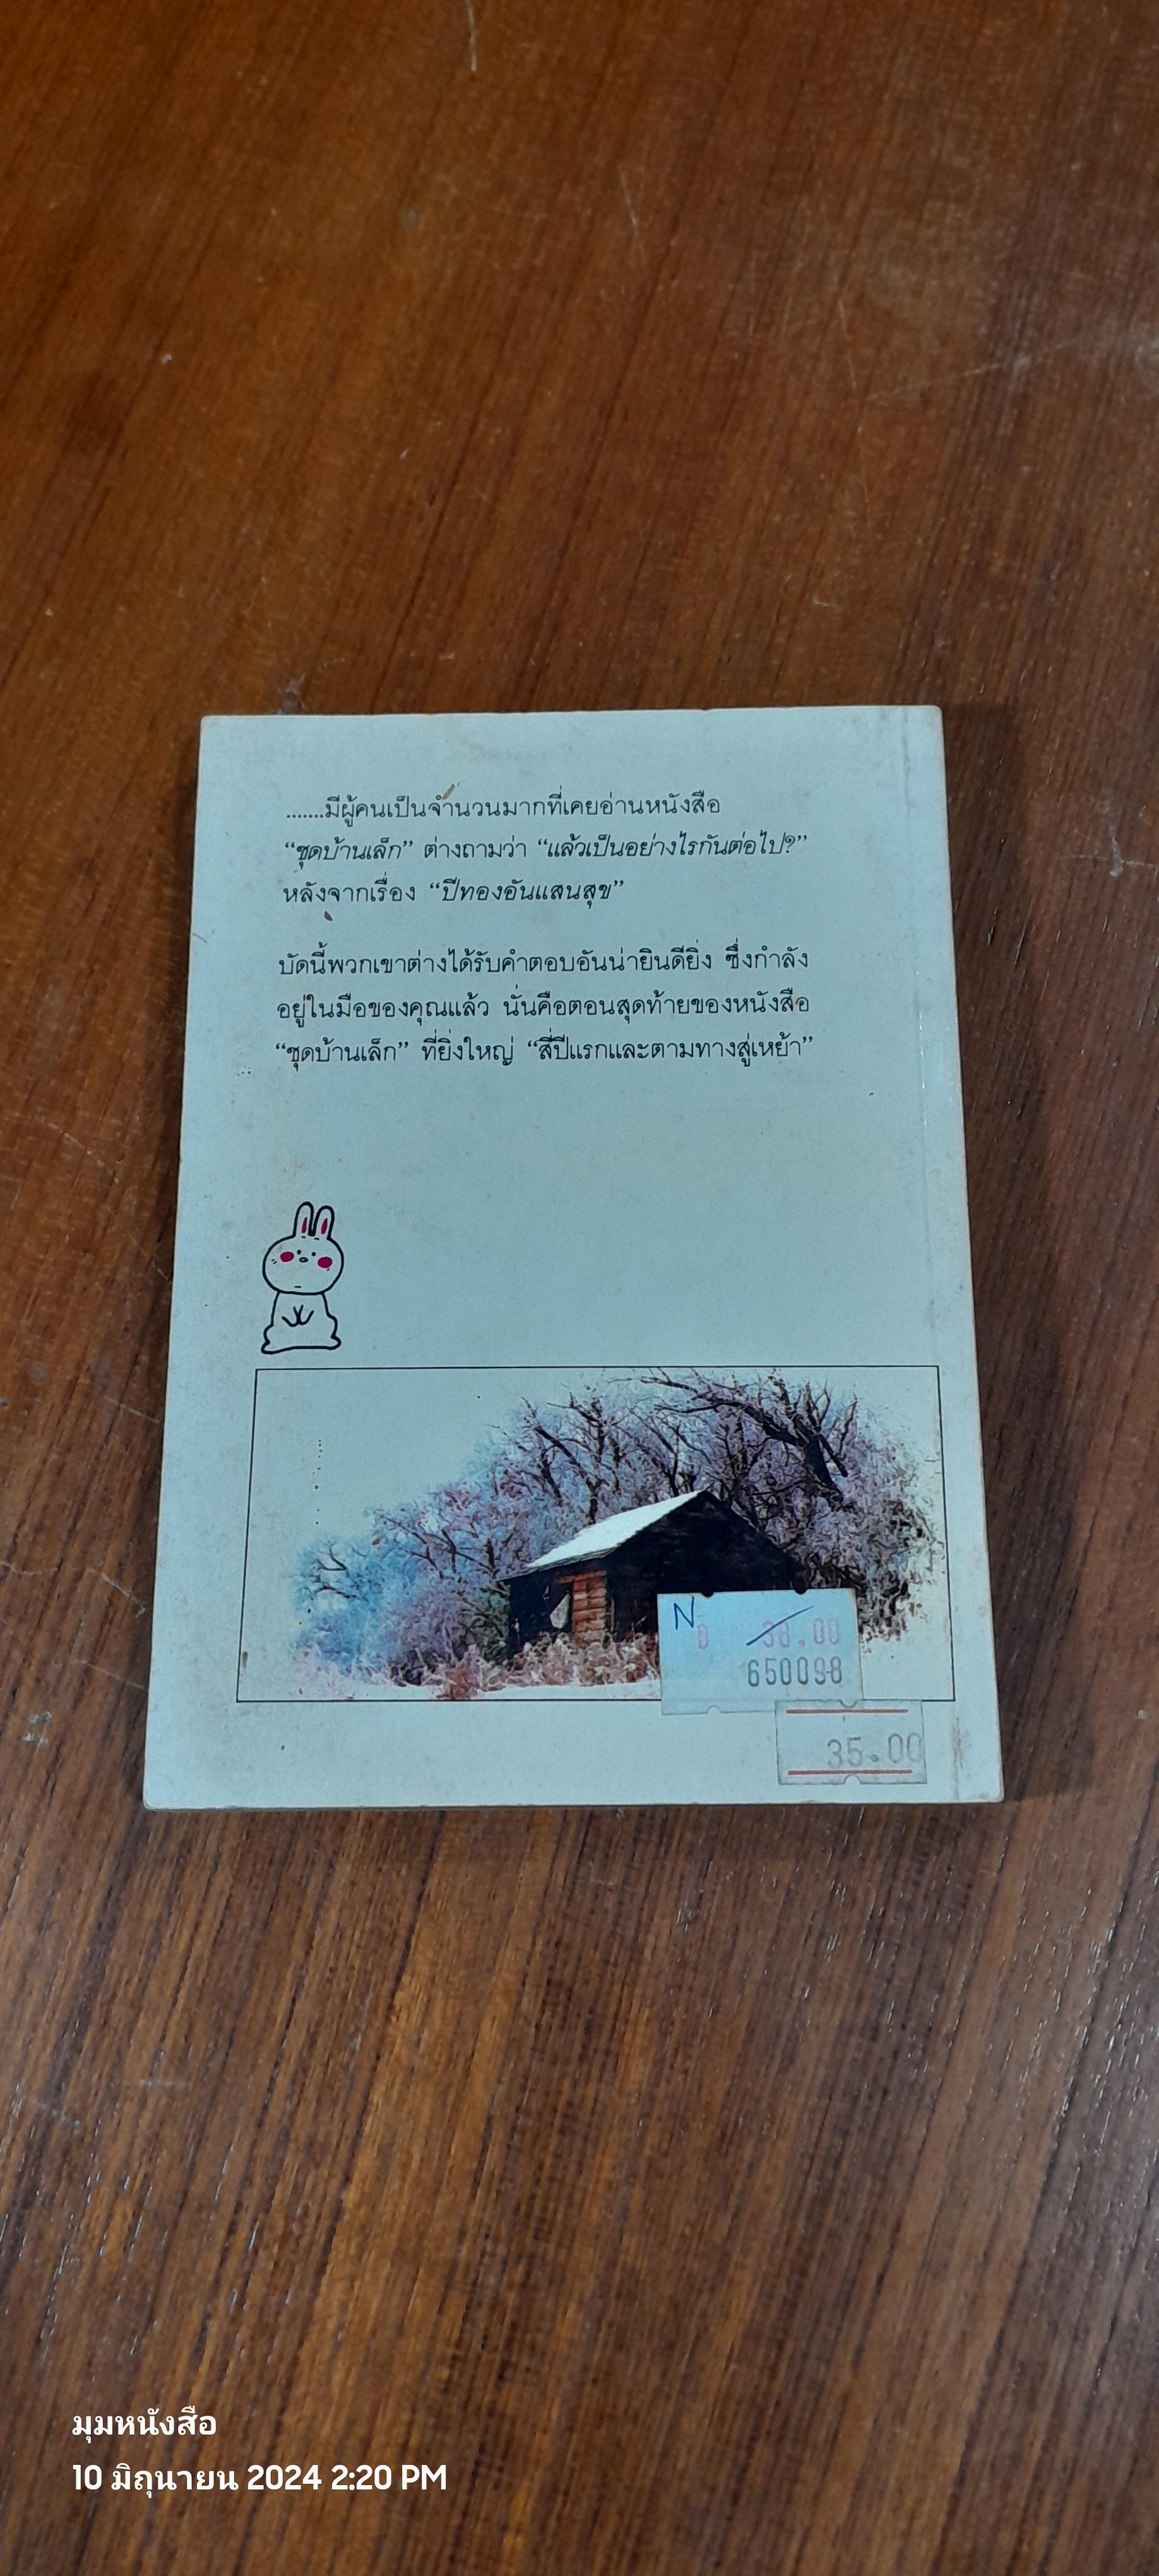 .......มีผู้คนเป็นจำนวนมากที่เคยอ่านหนังสือ
“ชุดบ้านเล็ก” ต่างถามว่า “แล้วเป็นอย่างไรกันต่อไป?”
หลังจากเรื่อง “ปีทองอันแสนสุข”
บัดนี้พวกเขาต่างได้รับคำตอบอันน่ายินดียิ่ง ซึ่งกำลัง
อยู่ในมือของคุณแล้ว นั่นคือตอนสุดท้ายของหนังสือ
“ชุดบ้านเล็ก” ที่ยิ่งใหญ่ “สี่ปีแรกและตามทางสู่เหย้า”
N
D 30.00
650098
35.00
มุมหนังสือ
10 มิถุนายน 2024 2:20 PM